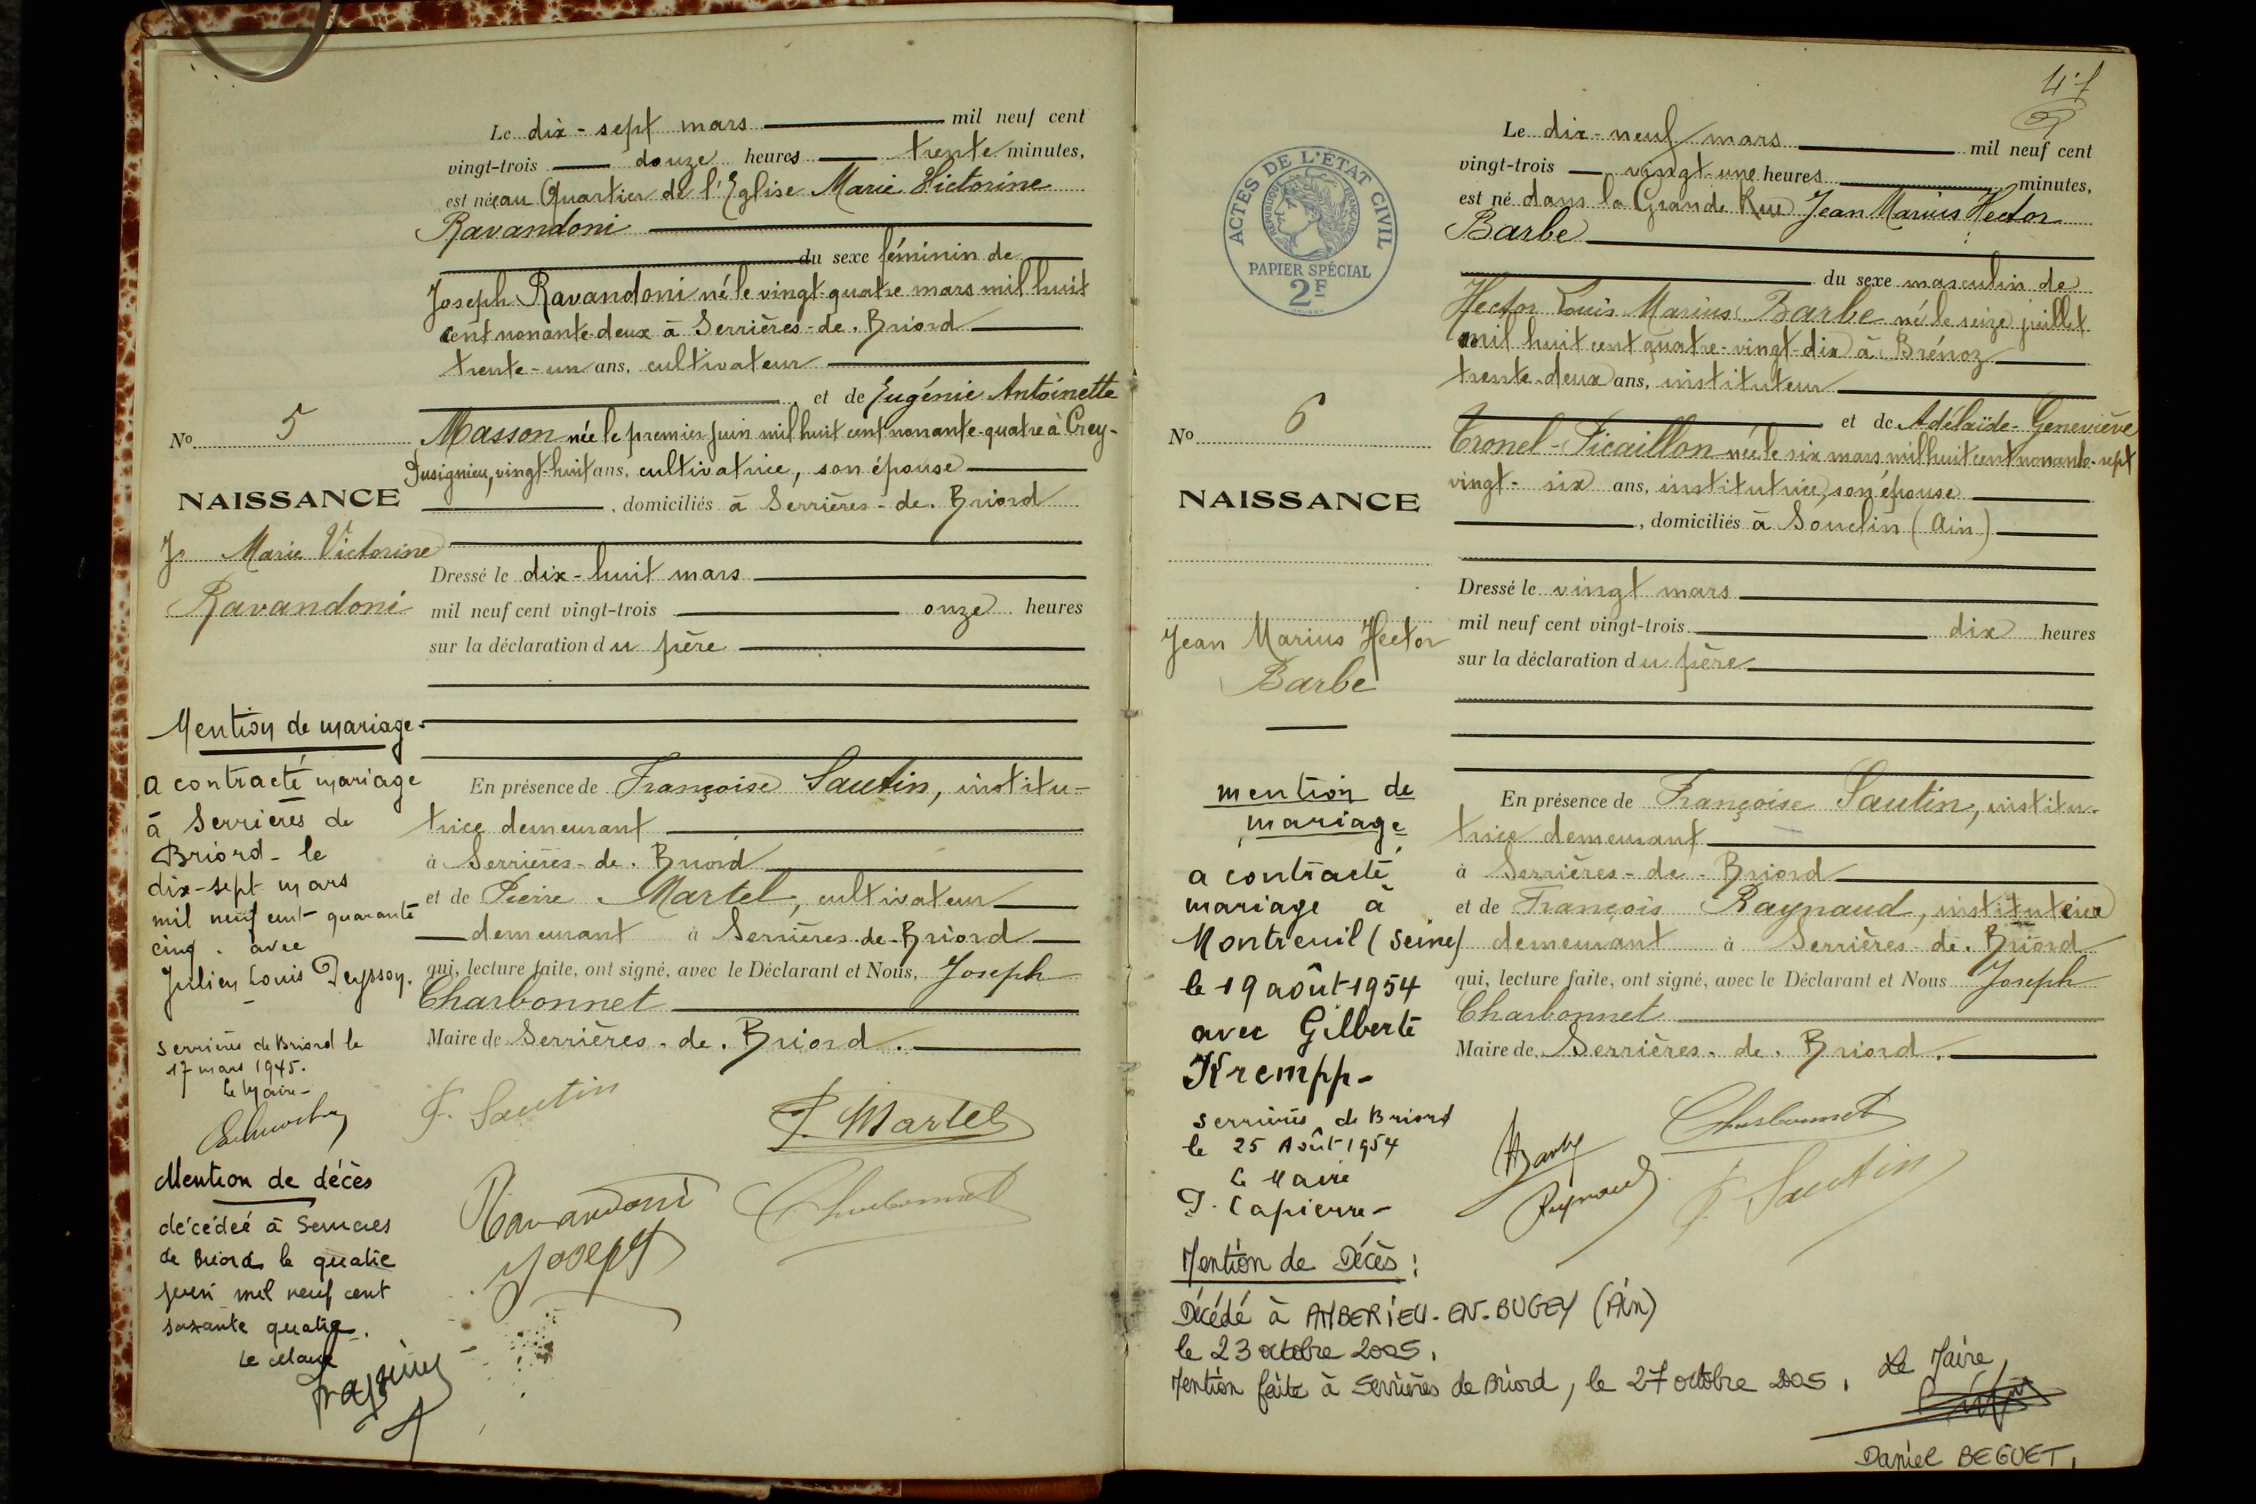 Le dix-sept mars mil neuf cent
vingt-trois douze heures trente minutes,
est née au Quartier de l'Eglise Marie Victorine
Ravandoni
du sexe féminin de
Joseph Ravandoni né le vingt-quatre mars mil huit
cent nonante-deux à Serrières-de-Briord
trente-un ans, cultivateur
et de Eugénie Antoinette
Masson née le premier juin mil huit cent nonante-quatre à Crey-
Pusignieu, vingt-huit ans, cultivatrice, son épouse
, domiciliés à Serrières-de-Briord
Dressé le dix-huit mars
mil neuf cent vingt-trois onze heures
sur la déclaration du père
En présence de Françoise Sautin, institu-
trice demeurant
à Serrières-de-Briord
et de Pierre Martel, cultivateur
demeurant à Serrières-de-Briord
qui, lecture faite, ont signé, avec le Déclarant et Nous, Joseph
Charbonnet
Maire de Serrières-de-Briord.
F. Sautin
P. Martel
Ravandoni
Joseph
Charbonnet
No 5
NAISSANCE
Marie Victorine
Ravandoni
Mention de mariage.
a contracté mariage
à Serrières de
Briord - le
dix-sept mars
mil neuf cent quarante
cinq. avec
Julien Louis Peysson.
Serrières de Briord le
17 mars 1945.
Le Maire -
Mention de décès
décédée à Serrières
de Briord le quatre
juin mil neuf cent
soixante quatre.
Le Maire
47
ACTES DE L'ÉTAT CIVIL
RÉPUBLIQUE FRANÇAISE
PAPIER SPÉCIAL
2F
Le dix-neuf mars mil neuf cent
vingt-trois vingt-une heures minutes,
est né dans la Grande Rue Jean Marius Hector
Barbe
du sexe masculin de
Hector Louis Marius Barbe né le seize juillet
mil huit cent quatre-vingt-dix à Brénoz
trente-deux ans, instituteur
et de Adélaïde-Geneviève
Tronel-Picaillon née le six mars mil huit cent nonante-sept
vingt-six ans, institutrice, son épouse
, domiciliés à Souclin (Ain)
Dressé le vingt mars
mil neuf cent vingt-trois dix heures
sur la déclaration du père
En présence de Françoise Sautin, institu-
trice demeurant
à Serrières-de-Briord
et de François Raynaud, instituteur
demeurant à Serrières-de-Briord
qui, lecture faite, ont signé, avec le Déclarant et Nous Joseph
Charbonnet
Maire de Serrières-de-Briord.
Charbonnet
HBarbe
Raynaud
F. Sautin
No 6
NAISSANCE
Jean Marius Hector
Barbe
mention de
mariage
a contracté
mariage à
Montreuil (Seine)
le 19 août 1954
avec Gilberte
Krempp -
Serrières de Briord
le 25 Août 1954
Le Maire
P. Capierre -
Mention de Décès :
Décédé à AMBERIEU-EN-BUGEY (Ain)
le 23 octobre 2005.
Mention faite à Serrières de Briord, le 27 octobre 2005. Le Maire,
Daniel BEGUET.